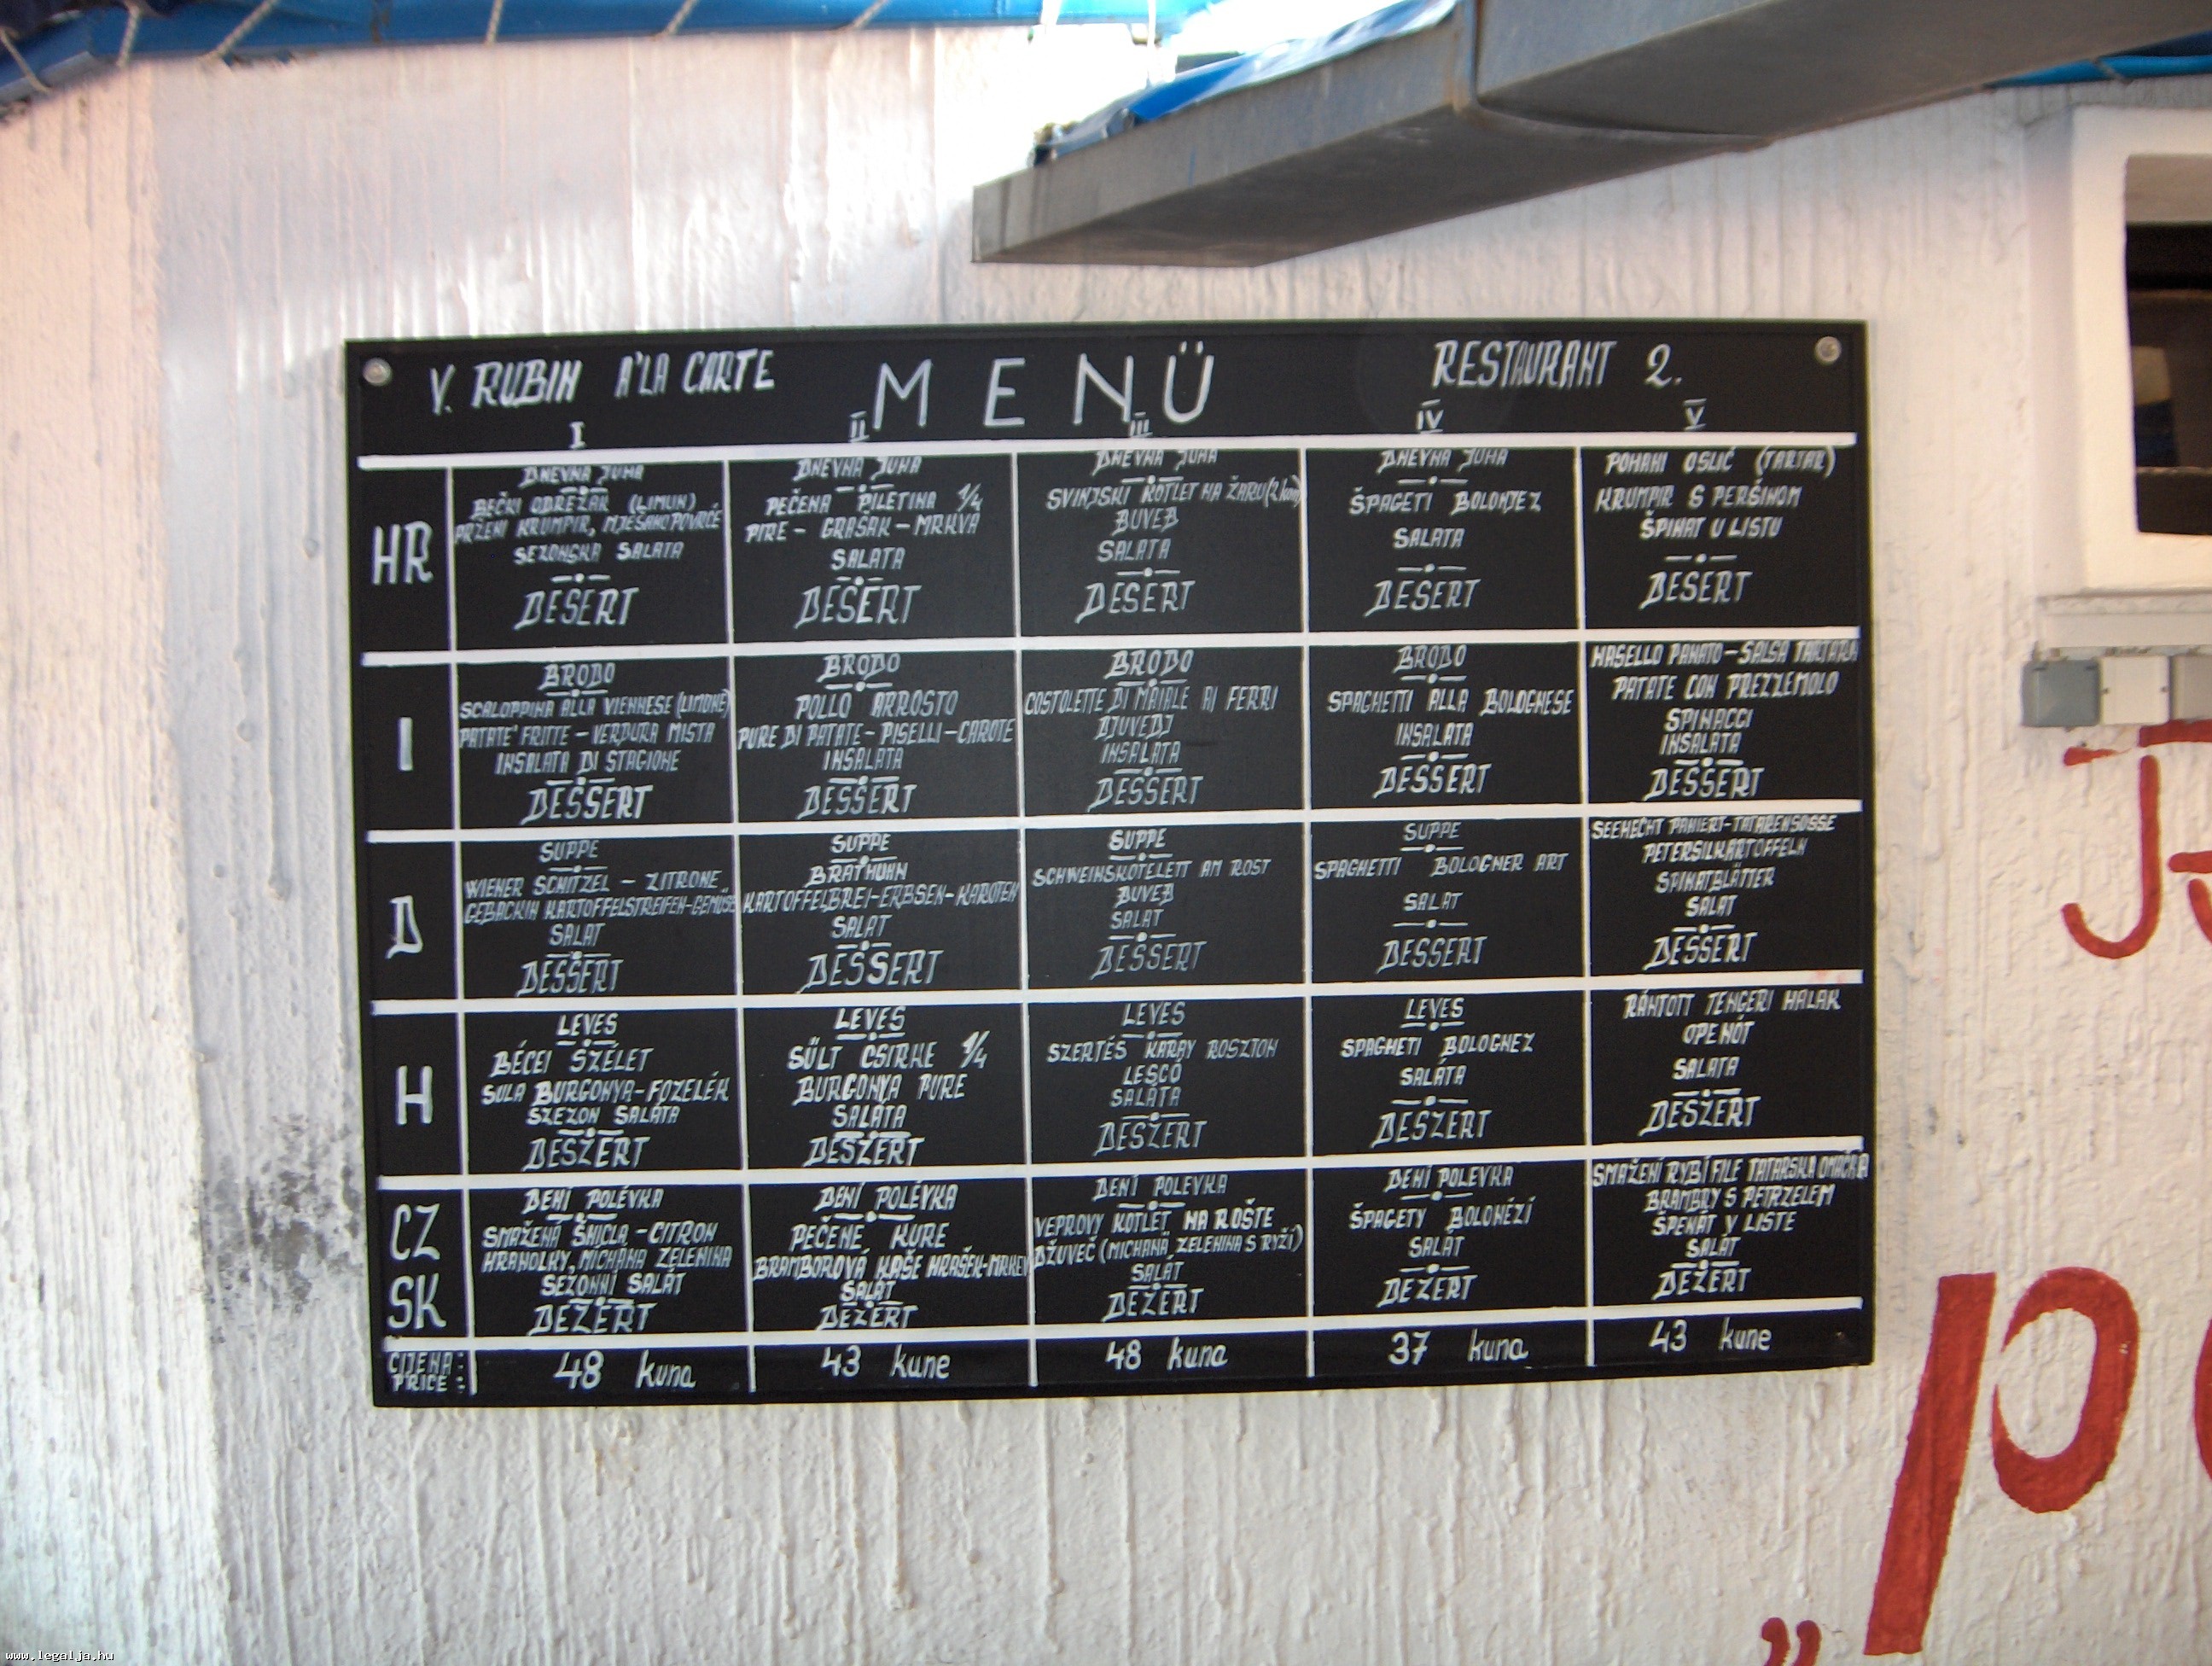 V. RUBIN A'LA CARTE MENÜ RESTAURANT 2.
I II III IV V
HR
DNEVNA JUHA
BEČKI ODREZAK (LIMUN)
PRŽENI KRUMPIR, MJEŠANO POVRĆE
SEZONSKA SALATA
DESERT
DNEVNA JUHA
PEČENA PILETINA 1/4
PIRE - GRAŠAK - MRKVA
SALATA
DESERT
DNEVNA JUHA
SVINJSKI KOTLET NA ŽARU (2 kom)
ĐUVEĐ
SALATA
DESERT
DNEVNA JUHA
ŠPAGETI BOLONJEZ
SALATA
DESERT
POHANI OSLIĆ (TARTAR)
KRUMPIR S PERŠINOM
ŠPINAT U LISTU
DESERT
I
BRODO
SCALOPPINA ALLA VIENNESE (LIMONE)
PATATE' FRITTE - VERDURA MISTA
INSALATA DI STAGIONE
DESSERT
BRODO
POLLO ARROSTO
PURE DI PATATE - PISELLI - CAROTE
INSALATA
DESSERT
BRODO
COSTOLETTE DI MAIALE AI FERRI
DJUVEDJ
INSALATA
DESSERT
BRODO
SPAGHETTI ALLA BOLOGNESE
INSALATA
DESSERT
NASELLO PANATO - SALSA TARTARA
PATATE CON PREZZEMOLO
SPINACCI
INSALATA
DESSERT
D
SUPPE
WIENER SCHITZEL - ZITRONE
GEBACKIN KARTOFFELSTREIFEN-GEMÜSE
SALAT
DESSERT
SUPPE
BRATHUHN
KARTOFFELBREI-ERBSEN-KAROTEN
SALAT
DESSERT
SUPPE
SCHWEINSKOTELETT AM ROST
ĐUVEĐ
SALAT
DESSERT
SUPPE
SPAGHETTI BOLOGNER ART
SALAT
DESSERT
SEEHECHT PANIERT-TATARENSOSSE
PETERSILKARTOFFELN
SPINATBLÄTTER
SALAT
DESSERT
H
LEVES
BÉCEI SZÉLET
SULA BURGONYA-FOZELÉK
SZEZON SALÁTA
DESZERT
LEVES
SÜLT CSIRKE 1/4
BURGONYA PURE
SALÁTA
DESZERT
LEVES
SZERTÉS KARAY ROSZTON
LESCÓ
SALÁTA
DESZERT
LEVES
SPAGHETI BOLOGNEZ
SALÁTA
DESZERT
RÁNTOTT TENGERI HALAK
SALATA
DESZERT
CZ
SK
DENÍ POLÉVKA
SMAŽENÁ ŠNICLA - CITRON
HRANOLKY, MICHANA ZELENINA
SEZONNÍ SALÁT
DEZERT
DENÍ POLÉVKA
PEČENE KURE
BRAMBOROVÁ KAŠE HRAŠEK-MRKEV
SALÁT
DEZERT
DENÍ POLEVKA
VEPROVY KOTLET NA ROŠTE
DŽUVEČ (MICHANÁ ZELENINA S RYŽÍ)
SALÁT
DEZERT
DENÍ POLEVKA
ŠPAGETY BOLONÉZÍ
SALÁT
DEZERT
SMAŽENÍ RYBÍ FILE TATARSKA OMAČKA
BRAMBRY S PETRZELEM
ŠPENÁT V LISTE
SALÁT
DEZERT
CIJENA:
PRICE:
48 kuna
43 kune
48 kuna
37 kuna
43 kune
www.legalja.hu